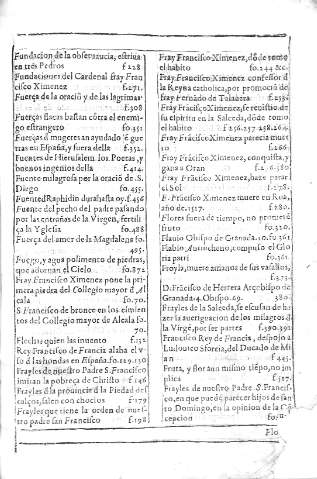 Fundacion de la obseruācia, estriua
en tres Pedros f 228
Fundaciones del Cardenal fray Fran
cisco Ximenez f.271.
Fuerça de la oraciō y de las lagrimas
f.308
Fuerças flacas bastan cōtra el enemi-
go estrangero fo.351
Fuerças d mugeres an ayudado
tras en España, y fuera della f 352.
Fuentes de Hierusalem los Poetas, y
buenos ingenios della f.414.
Fuente milagrosa por la oraciō de S.
Diego fo.455.
Fuēted Raphidin durahasta oy. f.456
Fuente del pecho del padre pasando
por las entrañas de la Virgen, fertili
ça la Yglesia fo.488
Fuerça del amor de la Magdalena fo
495.
Fuego, y agua polimento de piedras,
que adornan el Cielo fo.872
Fray Francisco Ximenez pone la pri
mera piedra del Collegio mayor d Al
cala fo.70.
S. Francisco de bronce en los cimien
tos del Collegio mayor de Alcala fo.
70.
Flechas quien las inuento f.152.
Rey Francisco de Francia alaba el v
so d las hondas en España. fo.129.130
Frayles de nuestro Padre S. Francisco
imitan la pobreça de Christo f.146
Frayles d la prouincia d la Piedad des
calços, salen con choclos f.179
Frayles que tiene la orden de nues-
tro padre san Francisco f.198
Fray Francisco Ximenez, dōde tomo
el habito fo.244 &c.
Fray Francisco Ximenez confessor d
la Reyna catholica, por promociō de
fray Fernādo de Talabera f.255.
Fray Frācisco Ximenez, se resistio de
su espiritu en la Salceda, dōde tomo
el habito f 256.257.258.264.
Fray Frācisco Ximenez parecia muer
to f.266.
Fray Frācisco Ximenez, conquista, y
gana a Oran
Fray Frācisco Ximenez, haze parar
el Sol f.278.
F. Frācisco Ximenez muere en Roa,
año de.1517. f 280.
Flores fuera de tiempo, no prometē
fruto fo.320.
Flauio Obispo de Granada.10. fo 361.
Flauio, Antiocheno, compuso el Glo
ria patri fo.361.
Froyla, muere amanos de sus vasallos,
f.373.
D. Frācisco de Herrera Arçobispo de
Granada.4. Obispo.69. 380.
Frayles de la Salceda, se escusan de ha
zer la aueriguacion de los milagros d
la Virgē, por ser partes f.390.391
Francisco Rey de Francia, despojo a
Ludouico Sforcia, del Ducado de Mi
an f 445.
Fruta, y flor aun mismo tiēpo, no im
plica f.517.
Frayles de nuestro Padre S. Francis-
co, en que puedē parecer hijos de san
to Domingo, en la opinion de la Cō
cepcion
Flo